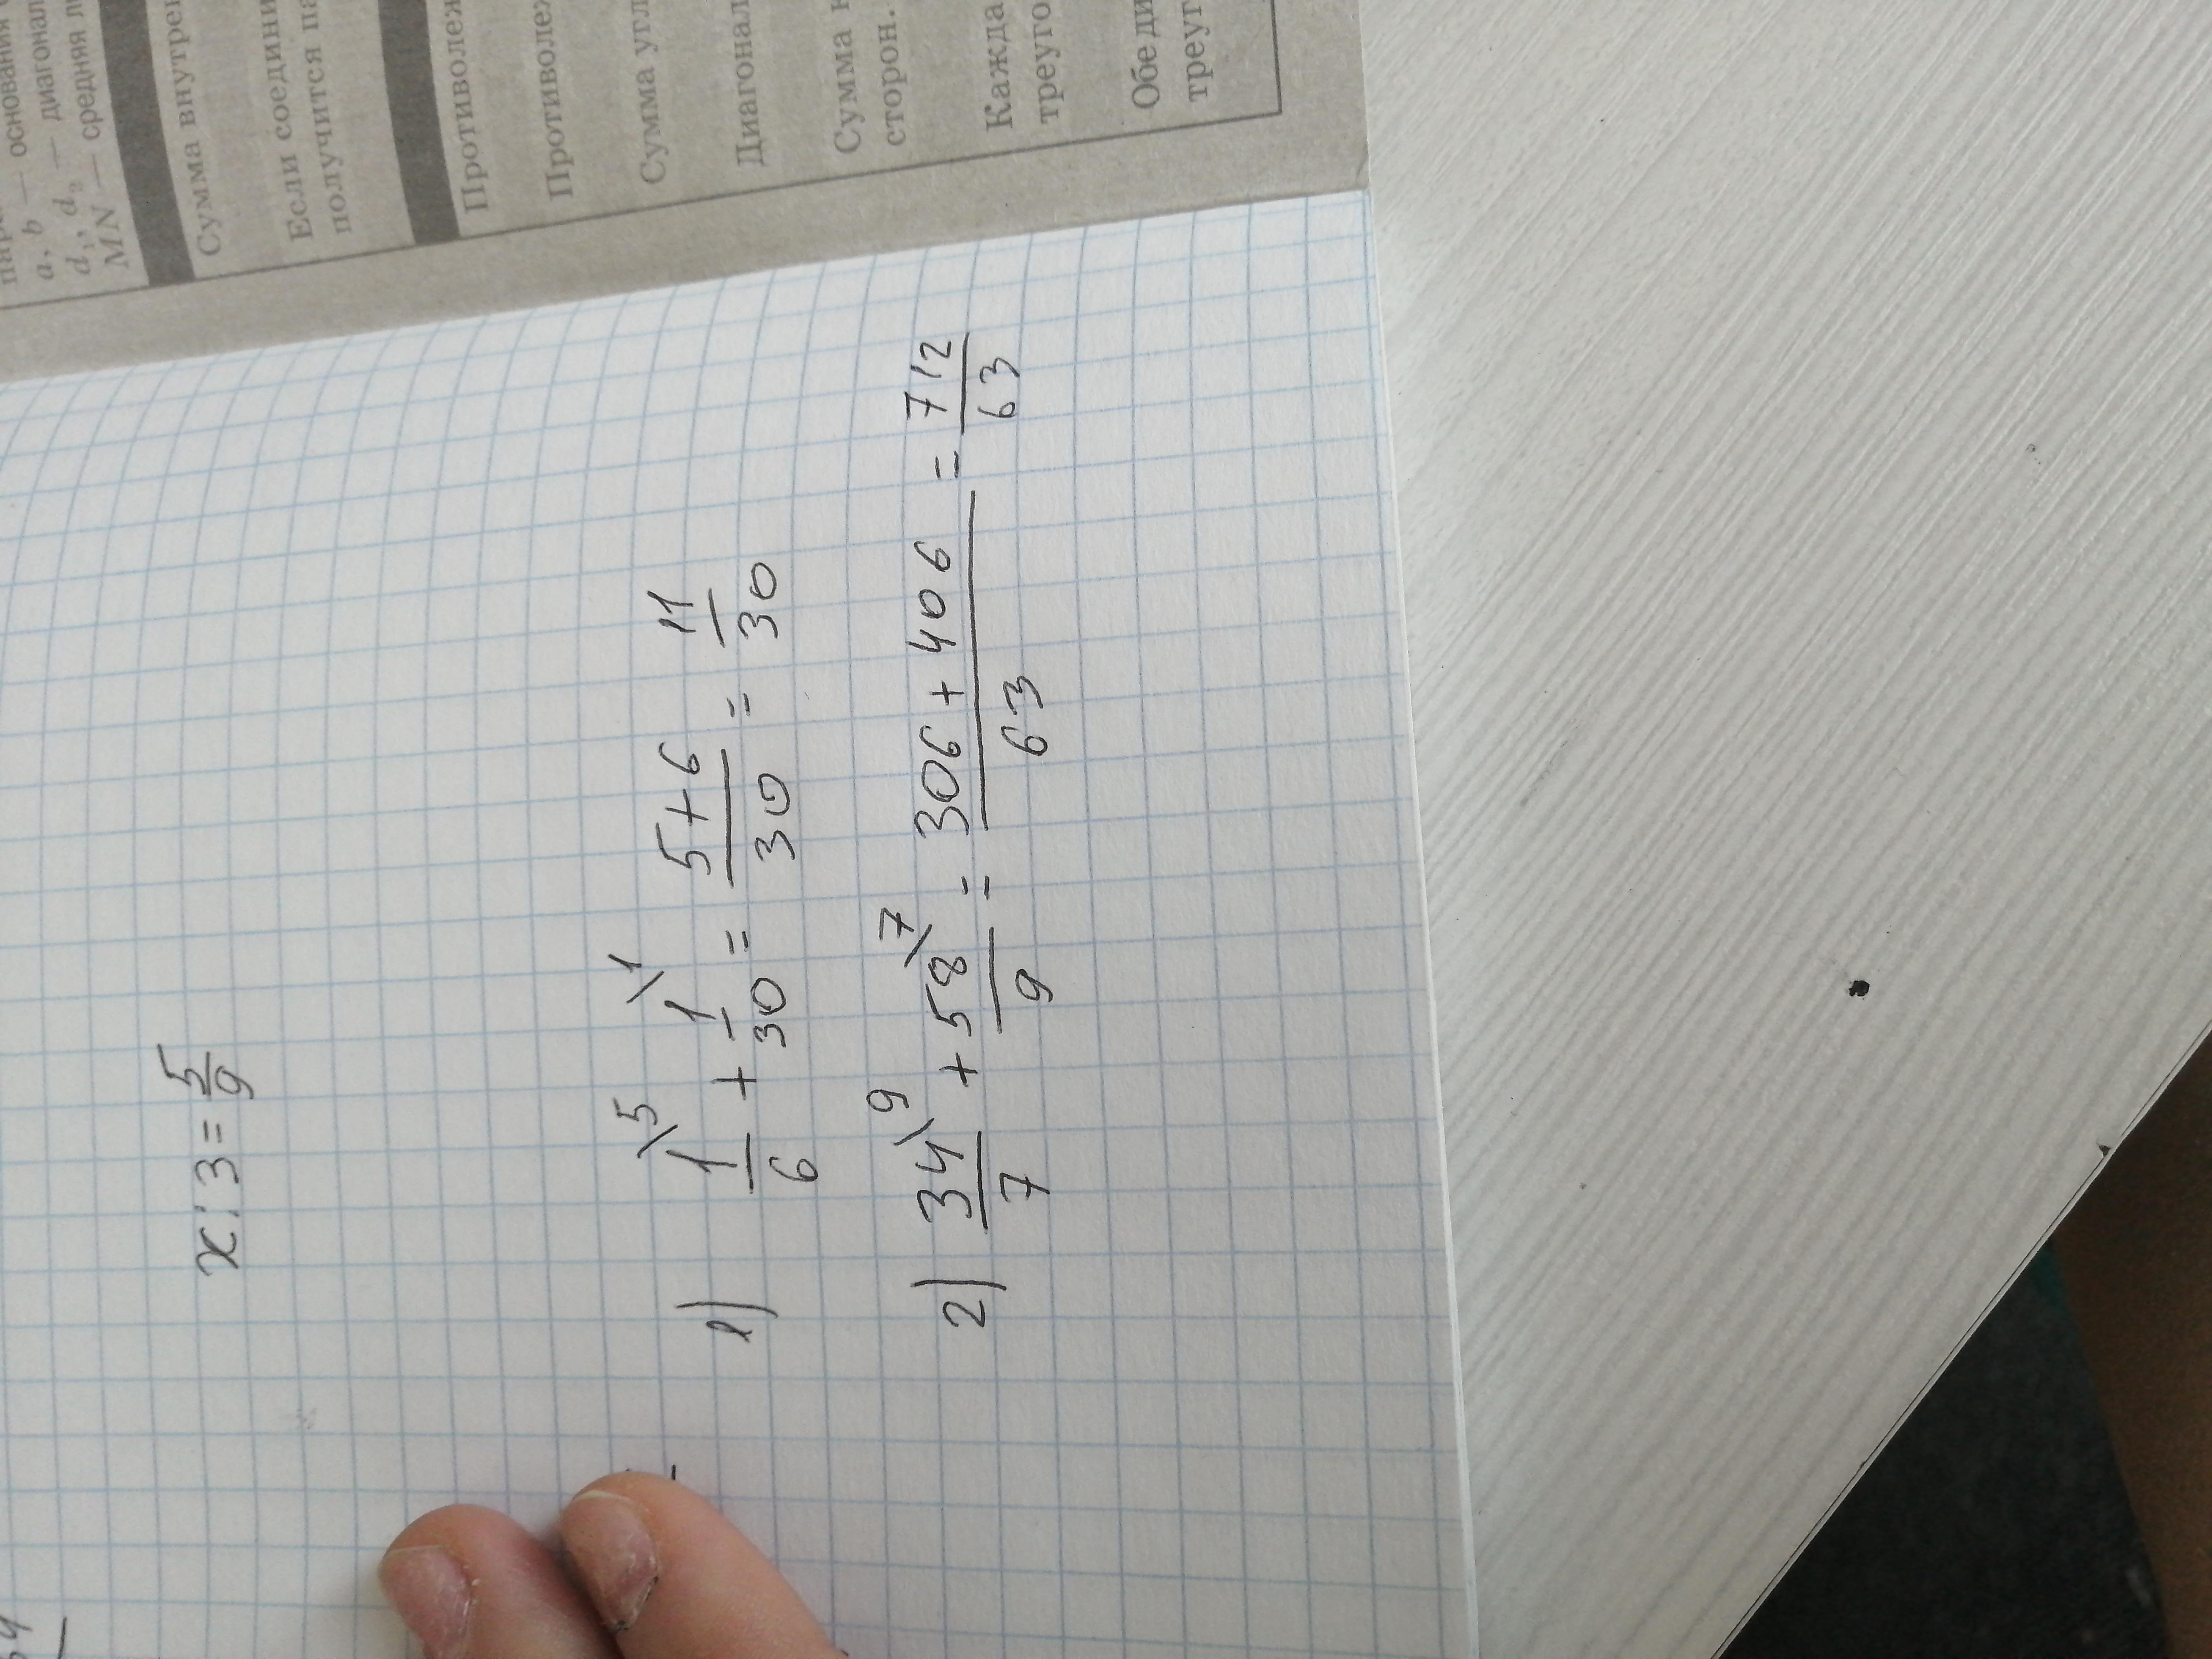 a, b — основания
d₁, d₂ — диагонал
MN — средняя л
Сумма внутре
Если соедини
получится па
Противолеж
Противолеж
Сумма угл
Диагонал
Сумма к
сторон.
Кажда
треуго
Обе ди
треуг
x : 3 = 5/9
1) 1/6\5 + 1/30\1 = (5+6)/30 = 11/30
2) 34/7\9 + 58/9\7 = (306+406)/63 = 712/63